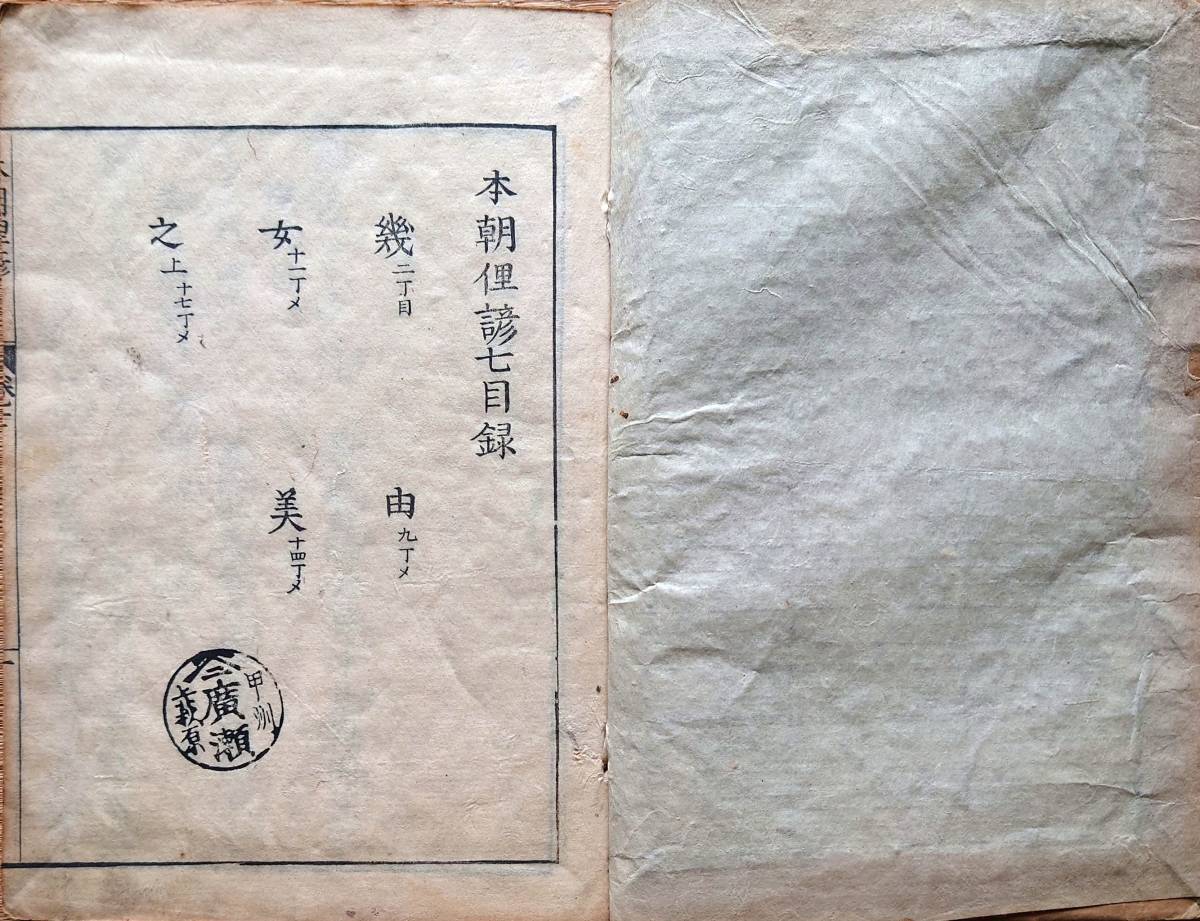 本朝俚諺七目録
幾 二丁目
由 九丁メ
女 十一丁メ
美 十四丁メ
之 上 十七丁メ
甲州
廣瀬
萩原
本朝俚諺